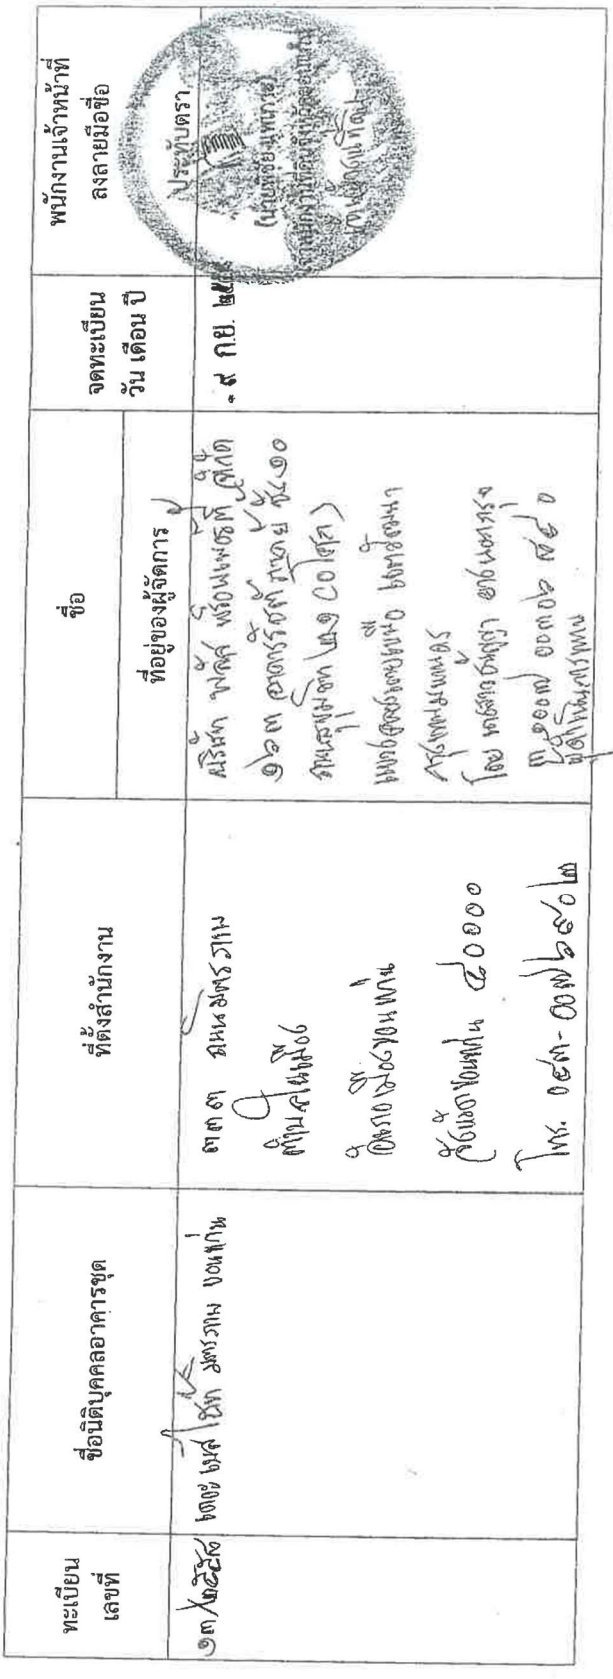 ทะเบียน
เลขที่
ชื่อนิติบุคคลอาคารชุด
ที่ตั้งสำนักงาน
ชื่อ
ที่อยู่ของผู้จัดการ
จดทะเบียน
วัน เดือน ปี
พนักงานเจ้าหน้าที่
ลงลายมือชื่อ
๑๓/๒๕๕๘
เดอะ เบส ไฮท มิตรภาพ ขอนแก่น
๓๓๓ ถนนมิตรภาพ
ตำบลในเมือง
อำเภอเมืองขอนแก่น
จังหวัดขอนแก่น ๔๐๐๐๐
โทร. ๐๔๓-
บริษัท พลัส พร็อพเพอร์ตี้ จำกัด
๑๖๓ อาคาร ชั้น ๑๐
ถนนสุขุมวิท ๒๑ (อโศก)
แขวงคลองเตยเหนือ เขตวัฒนา
กรุงเทพมหานคร
โดย นางสาว
ผู้ดำเนินการแทน
๙ ก.ย.
ประทับตรา